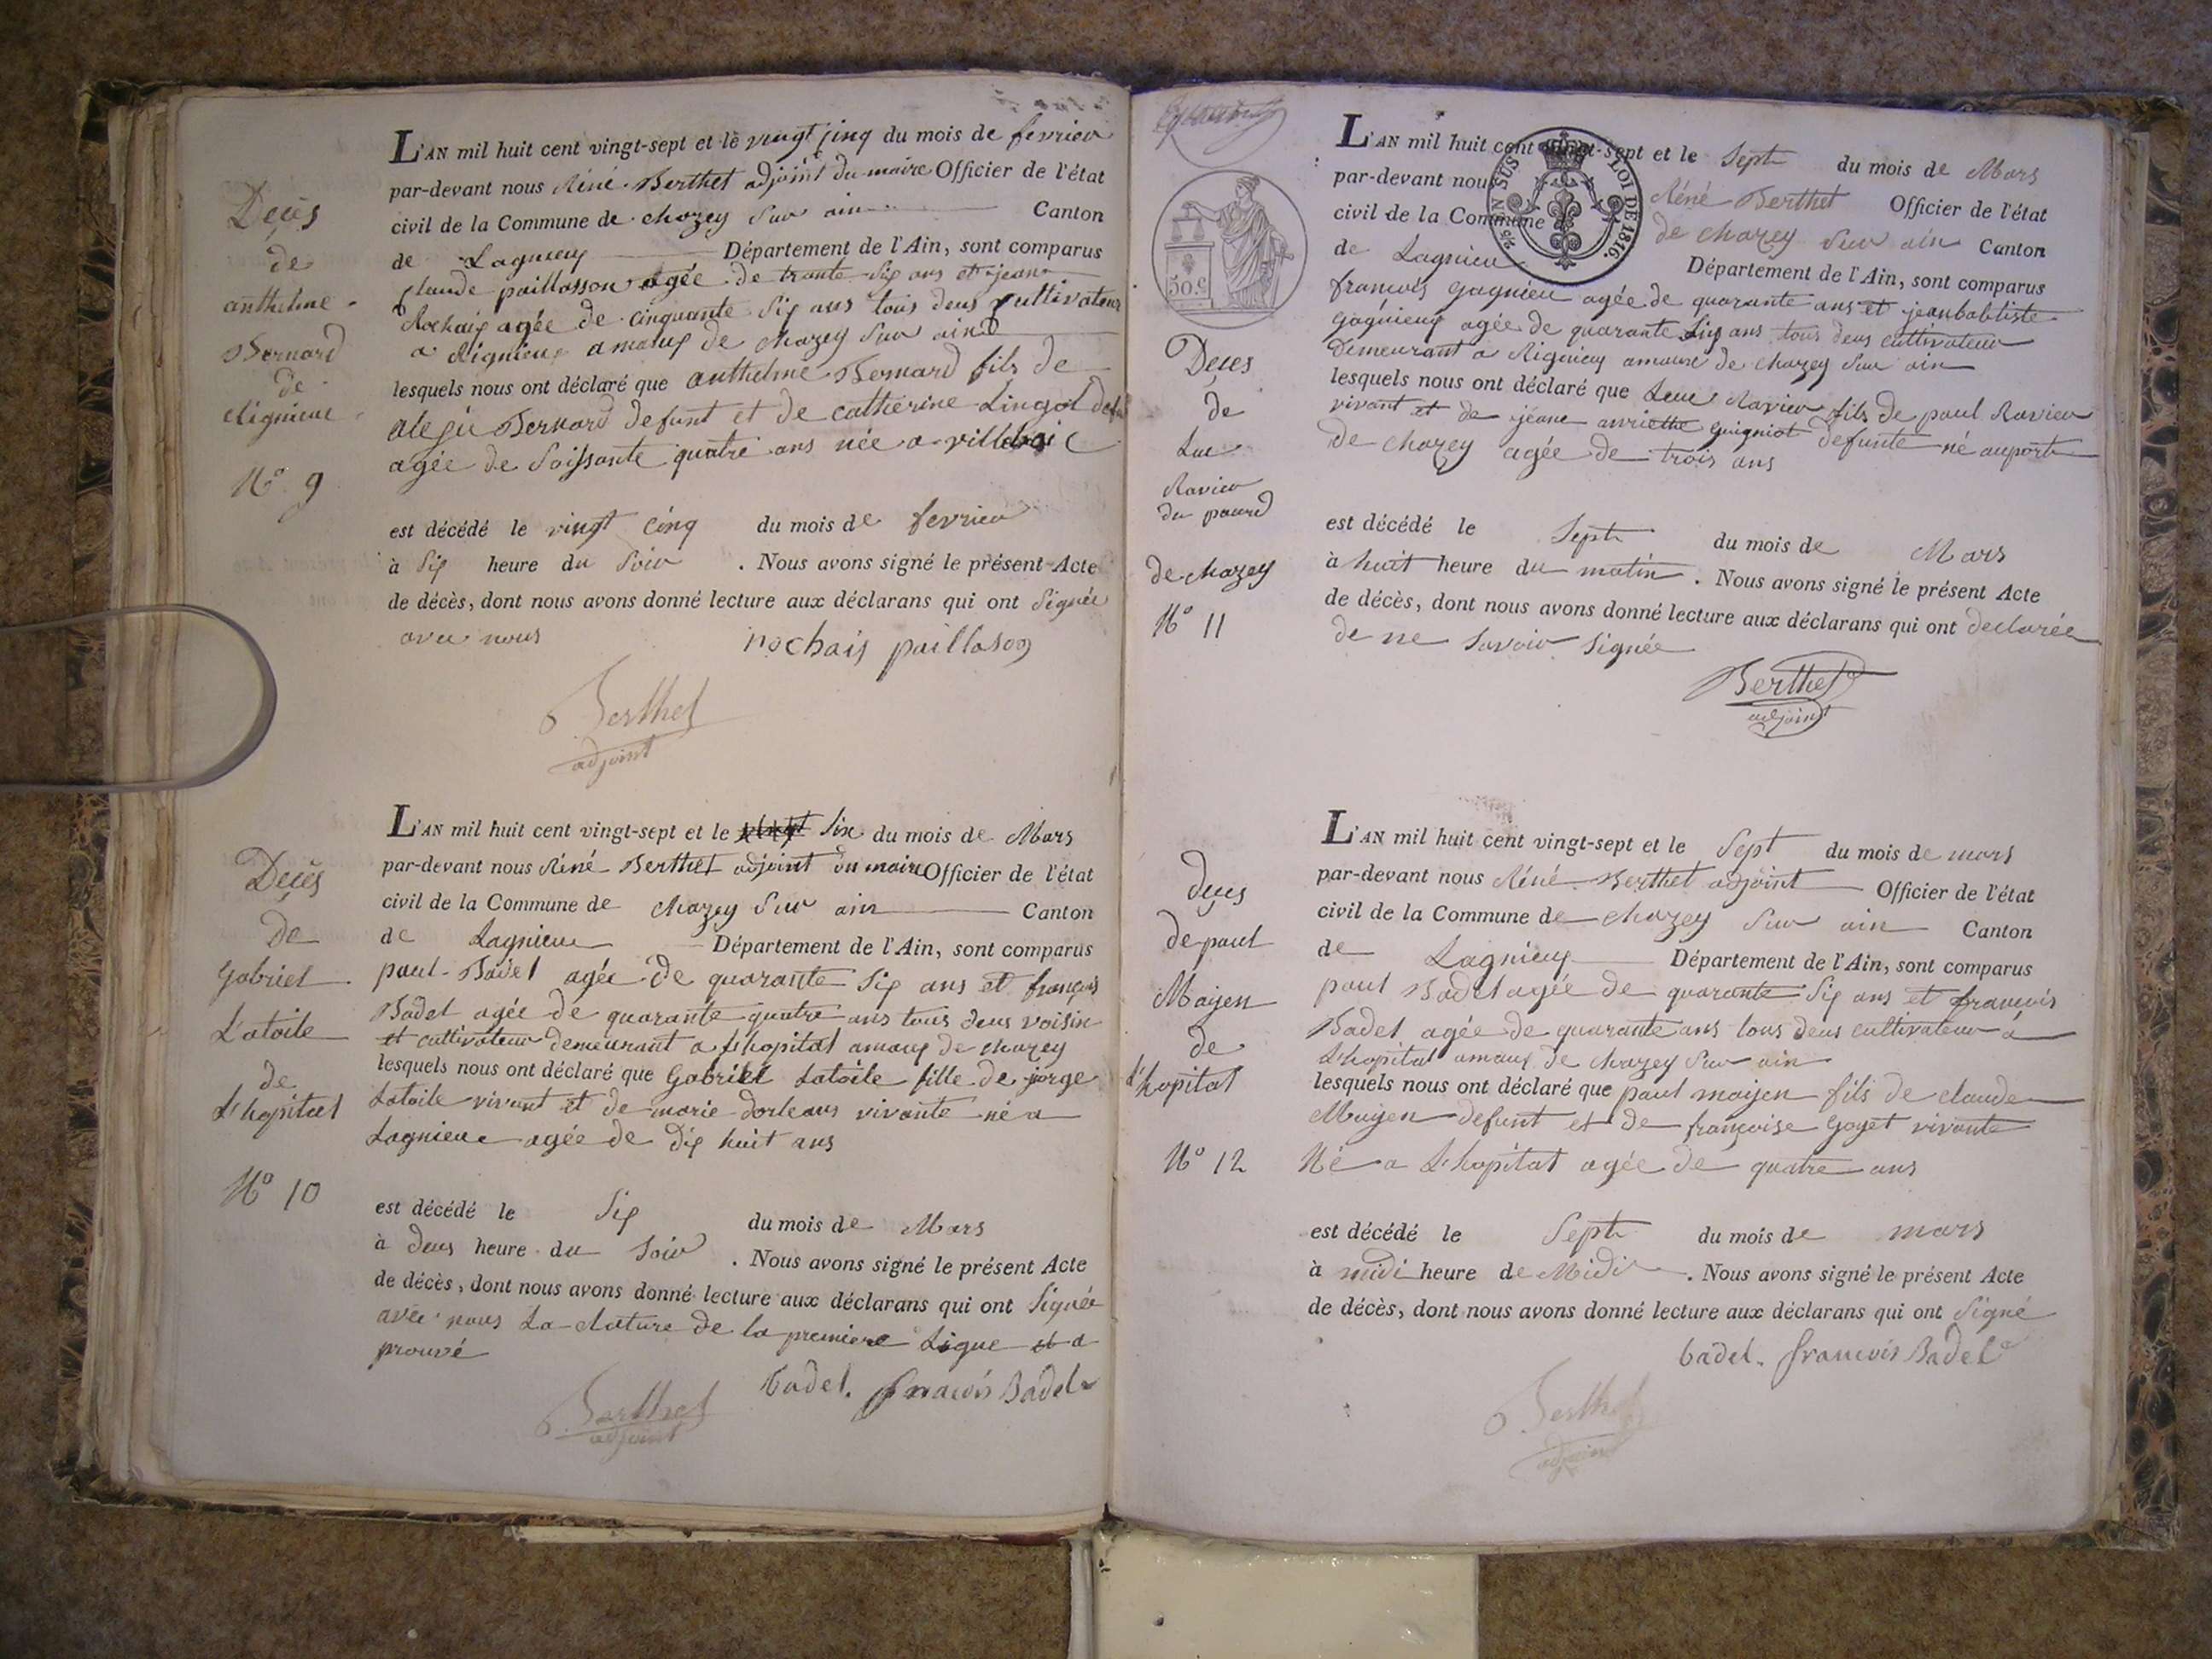 Deçès
de
anthelme
Bernard
de
Rignieux
N° 9
L'AN mil huit cent vingt-sept et le vingt cinq du mois de fevrier
par-devant nous Réné Berthet adjoint du maire Officier de l'état
civil de la Commune de chazey Sur ain Canton
de Lagnieu Département de l'Ain, sont comparus
Claude paillasson agée de trante Six ans et jean
Rochaix agée de cinquante Six ans tous deus cultivateur
a Rignieux amaux de chazey Sur ain
lesquels nous ont déclaré que anthelme Bernard fils de
Bernard defunt et de catherine Lingot
agée de Soissante quatre ans née a villebois
est décédé le vingt cinq du mois de fevrier
à Six heure du Soir . Nous avons signé le présent Acte
de décès, dont nous avons donné lecture aux déclarans qui ont Signée
avec nous
rochais paillason
Berthet
adjoint
Deçès
De
Gabriel
Latoile
de
L'hopital
N° 10
L'AN mil huit cent vingt-sept et le Six du mois de Mars
par-devant nous Réné Berthet adjoint du maire Officier de l'état
civil de la Commune de chazey Sur ain Canton
de Lagnieu Département de l'Ain, sont comparus
paul Badel agée de quarante Six ans et françois
Badel agée de quarante quatre ans tous deus voisin
et cultivateur demeurant a L'hopital amaux de chazey
lesquels nous ont déclaré que Gabriel Latoile fille de jorge
Latoile vivant et de marie dorleans vivante né a
Lagnieu agée de Dix huit ans
est décédé le Six du mois de Mars
à deus heure du Soir . Nous avons signé le présent Acte
de décès, dont nous avons donné lecture aux déclarans qui ont Signée
avec nous La rature de la premiere Ligne et a
prouvé
badel. francois Badel
Berthet
adjoint
50.c
N SUS
LOI DE 1816.
Deçes
de
Luc
Ravier
du paurd
de chazey
N° 11
L'AN mil huit cent vingt-sept et le Sept du mois de Mars
par-devant nous Réné Berthet Officier de l'état
civil de la Commune de chazey Sur ain Canton
de Lagnieu Département de l'Ain, sont comparus
francois Gagnieu agée de quarante ans et jeanbabtiste
Gagnieux agée de quarante Six ans tous deus cultivateur
Demeurant a Rignieux amaux de chazey Sur ain
lesquels nous ont déclaré que Luc Ravier fils de paul Ravier
vivant et de jeane anriette Guigniot defunte né auport
de chazey agée de trois ans
est décédé le Sept du mois de Mars
à huit heure du matin . Nous avons signé le présent Acte
de décès, dont nous avons donné lecture aux déclarans qui ont declarée
de ne Savoir Signée
Berthet
adjoint
deçes
de paul
Maijen
de
L'hopital
N° 12
L'AN mil huit cent vingt-sept et le Sept du mois de mars
par-devant nous Réné Berthet adjoint Officier de l'état
civil de la Commune de chazey Sur ain Canton
de Lagnieux Département de l'Ain, sont comparus
paul Badel agée de quarante Six ans et francois
Badel agée de quarante ans tous deus cultivateur à
L'hopital amaux de chazey Sur ain
lesquels nous ont déclaré que paul maijen fils de claude
Maijen defunt et de françoise Goyet vivante
Né a L'hopital agée de quatre ans
est décédé le Sept du mois de mars
à midi heure de Midi . Nous avons signé le présent Acte
de décès, dont nous avons donné lecture aux déclarans qui ont Signé
badel. francois Badel
Berthet
adjoint